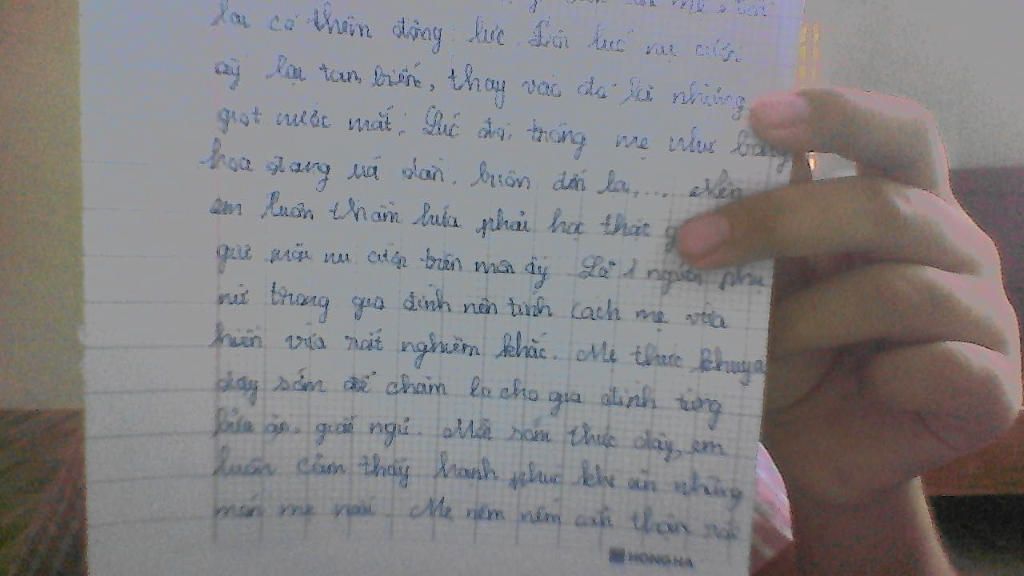 lại có thêm động lực. Đôi lúc nụ cười
ấy lại tan biến, thay vào đó là những
giọt nước mắt. Lúc đó, trông mẹ như bông
hoa đang úa dần, buồn đến lạ,... Nên
em luôn thầm hứa phải học thật
giữ mãi nụ cười trên môi ấy. Là 1 người phụ
nữ trong gia đình nên tính cách mẹ vừa
hiền vừa rất nghiêm khắc. Mẹ thức khuya
dậy sớm để chăm lo cho gia đình từng
bữa ăn, giấc ngủ. Mỗi sớm thức dậy, em
luôn cảm thấy hạnh phúc khi ăn những
món mẹ nấu. Mẹ nêm nếm cẩn thận rồi
HONG HA